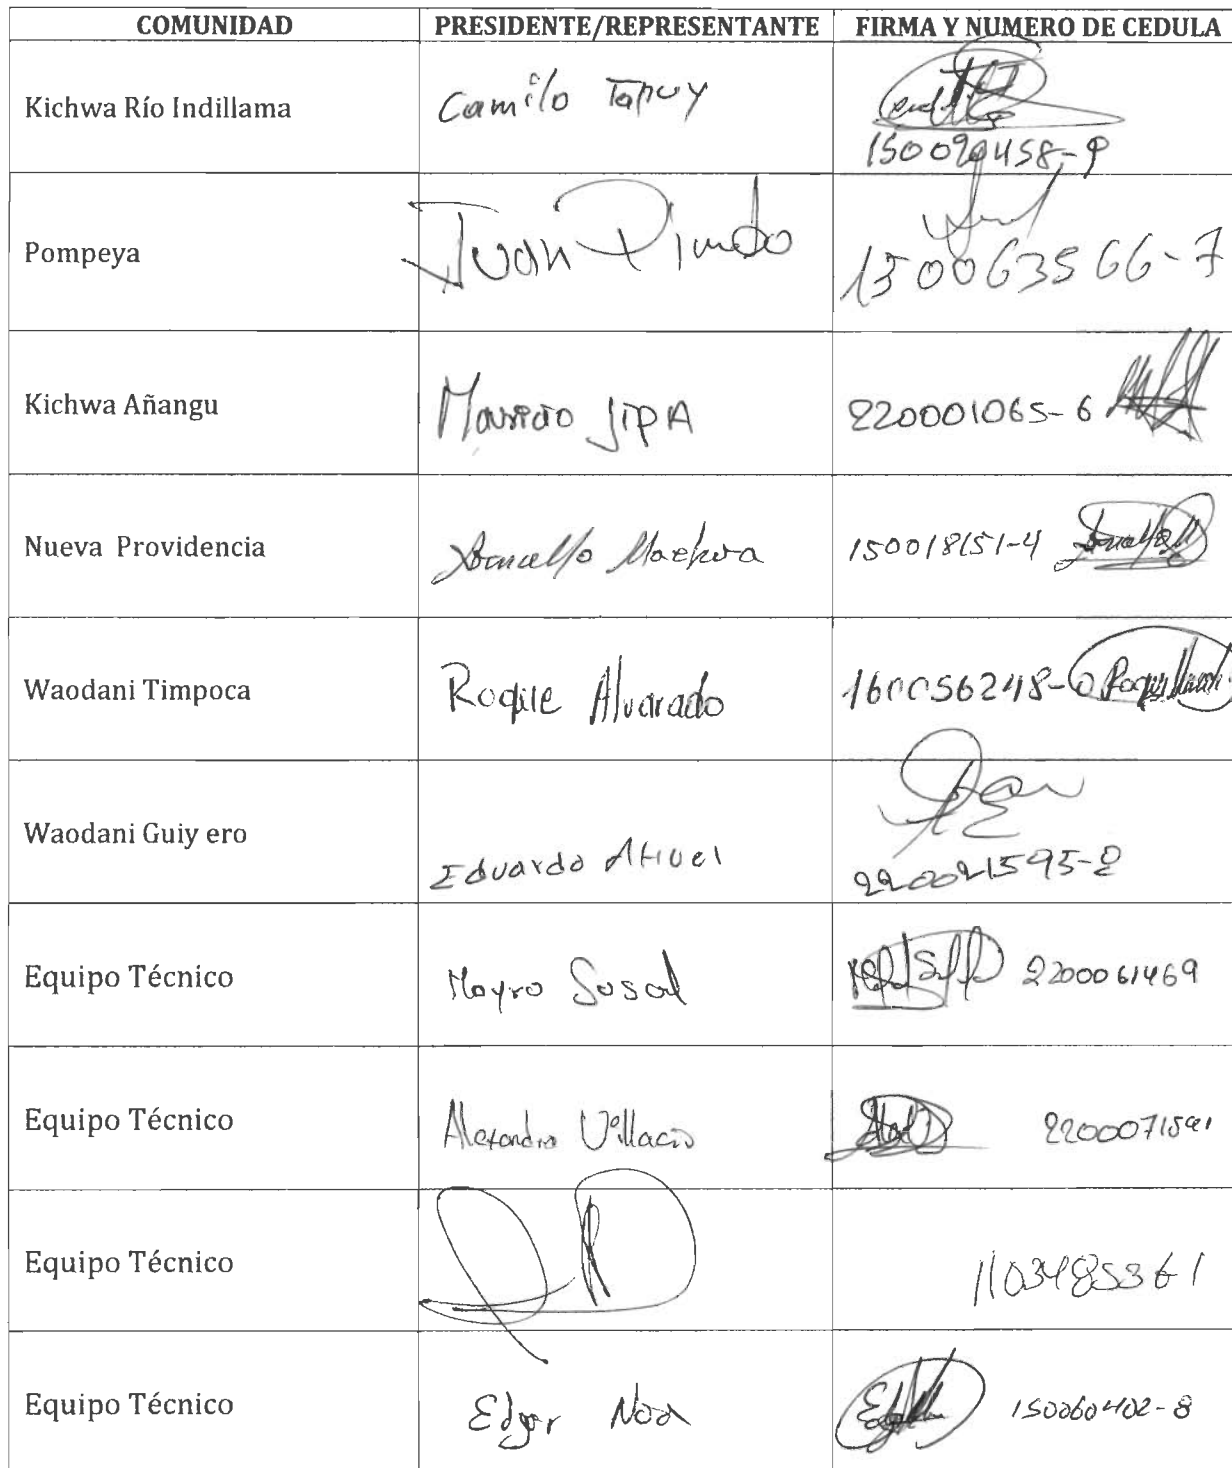 COMUNIDAD PRESIDENTE/REPRESENTANTE FIRMA Y NUMERO DE CEDULA
Kichwa Río Indillama Camilo Tapuy
150090458-9
Pompeya Juan Pindo 150063566-7
Kichwa Añangu Mauricio JIPA 220001065-6
Nueva Providencia 150018151-4
Waodani Timpoca Roque Alvarado 160056248-0
Waodani Guiy ero Eduardo
220021595-2
Equipo Técnico Mayro 2200061469
Equipo Técnico Alexandra Villacis
Equipo Técnico 1103485361
Equipo Técnico Edgar Noa 150060402-8